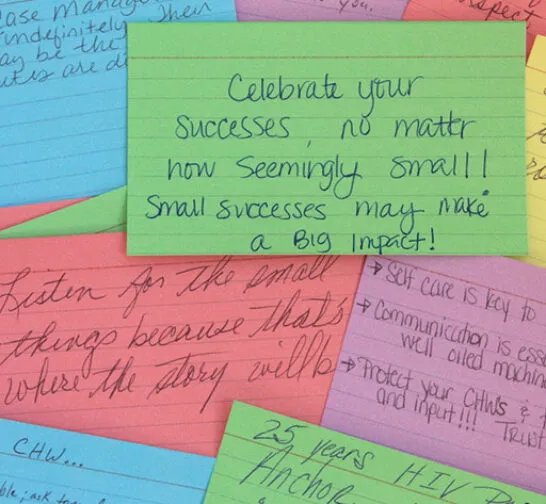 ase Manage
indefinitely. Then
ay be the
you.
spect
Celebrate your
successes, no matter
how seemingly small!!
Small successes may make
a BIG Impact!
Listen for the small
things because that's
where the story
→ Self care is key to
→ Communication is esse
well oiled machin
→ Protect your CHWs &
and input!!! Trust
CHW...
25 years HIV
Anchor